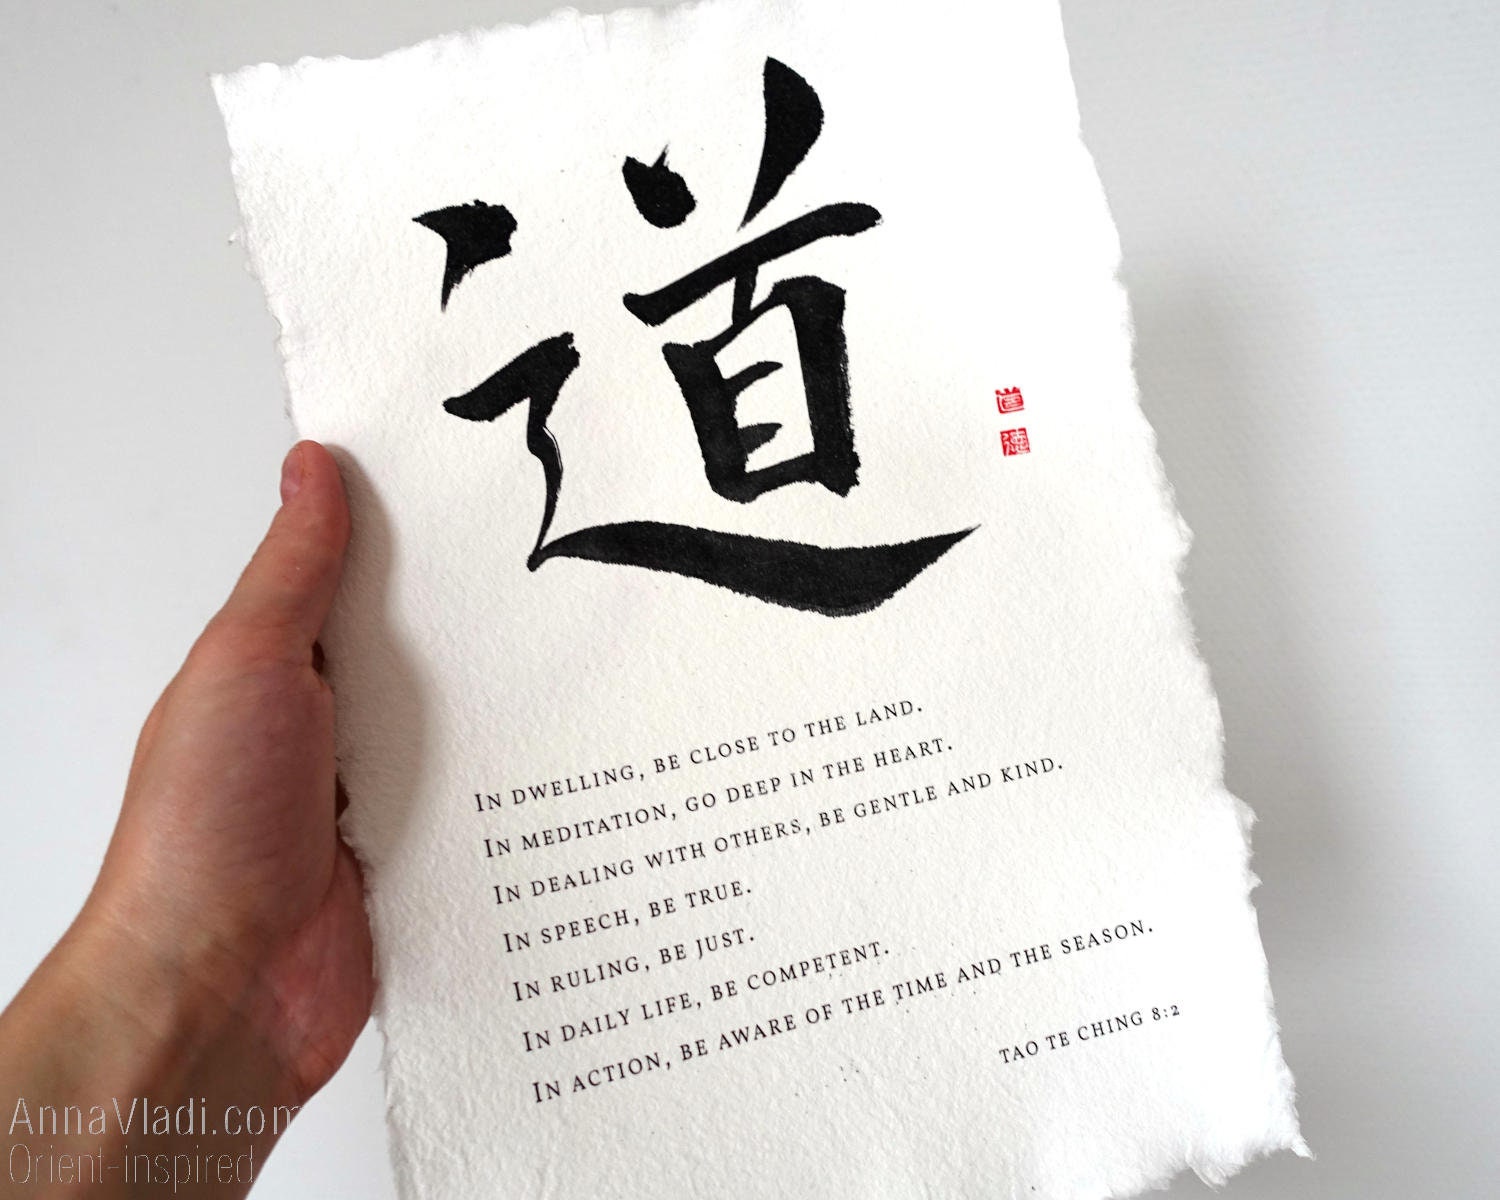 道
道
德
In dwelling, be close to the land.
In meditation, go deep in the heart.
In dealing with others, be gentle and kind.
In speech, be true.
In ruling, be just.
In daily life, be competent.
In action, be aware of the time and the season.
TAO TE CHING 8:2
AnnaVladi.com
Orient-inspired